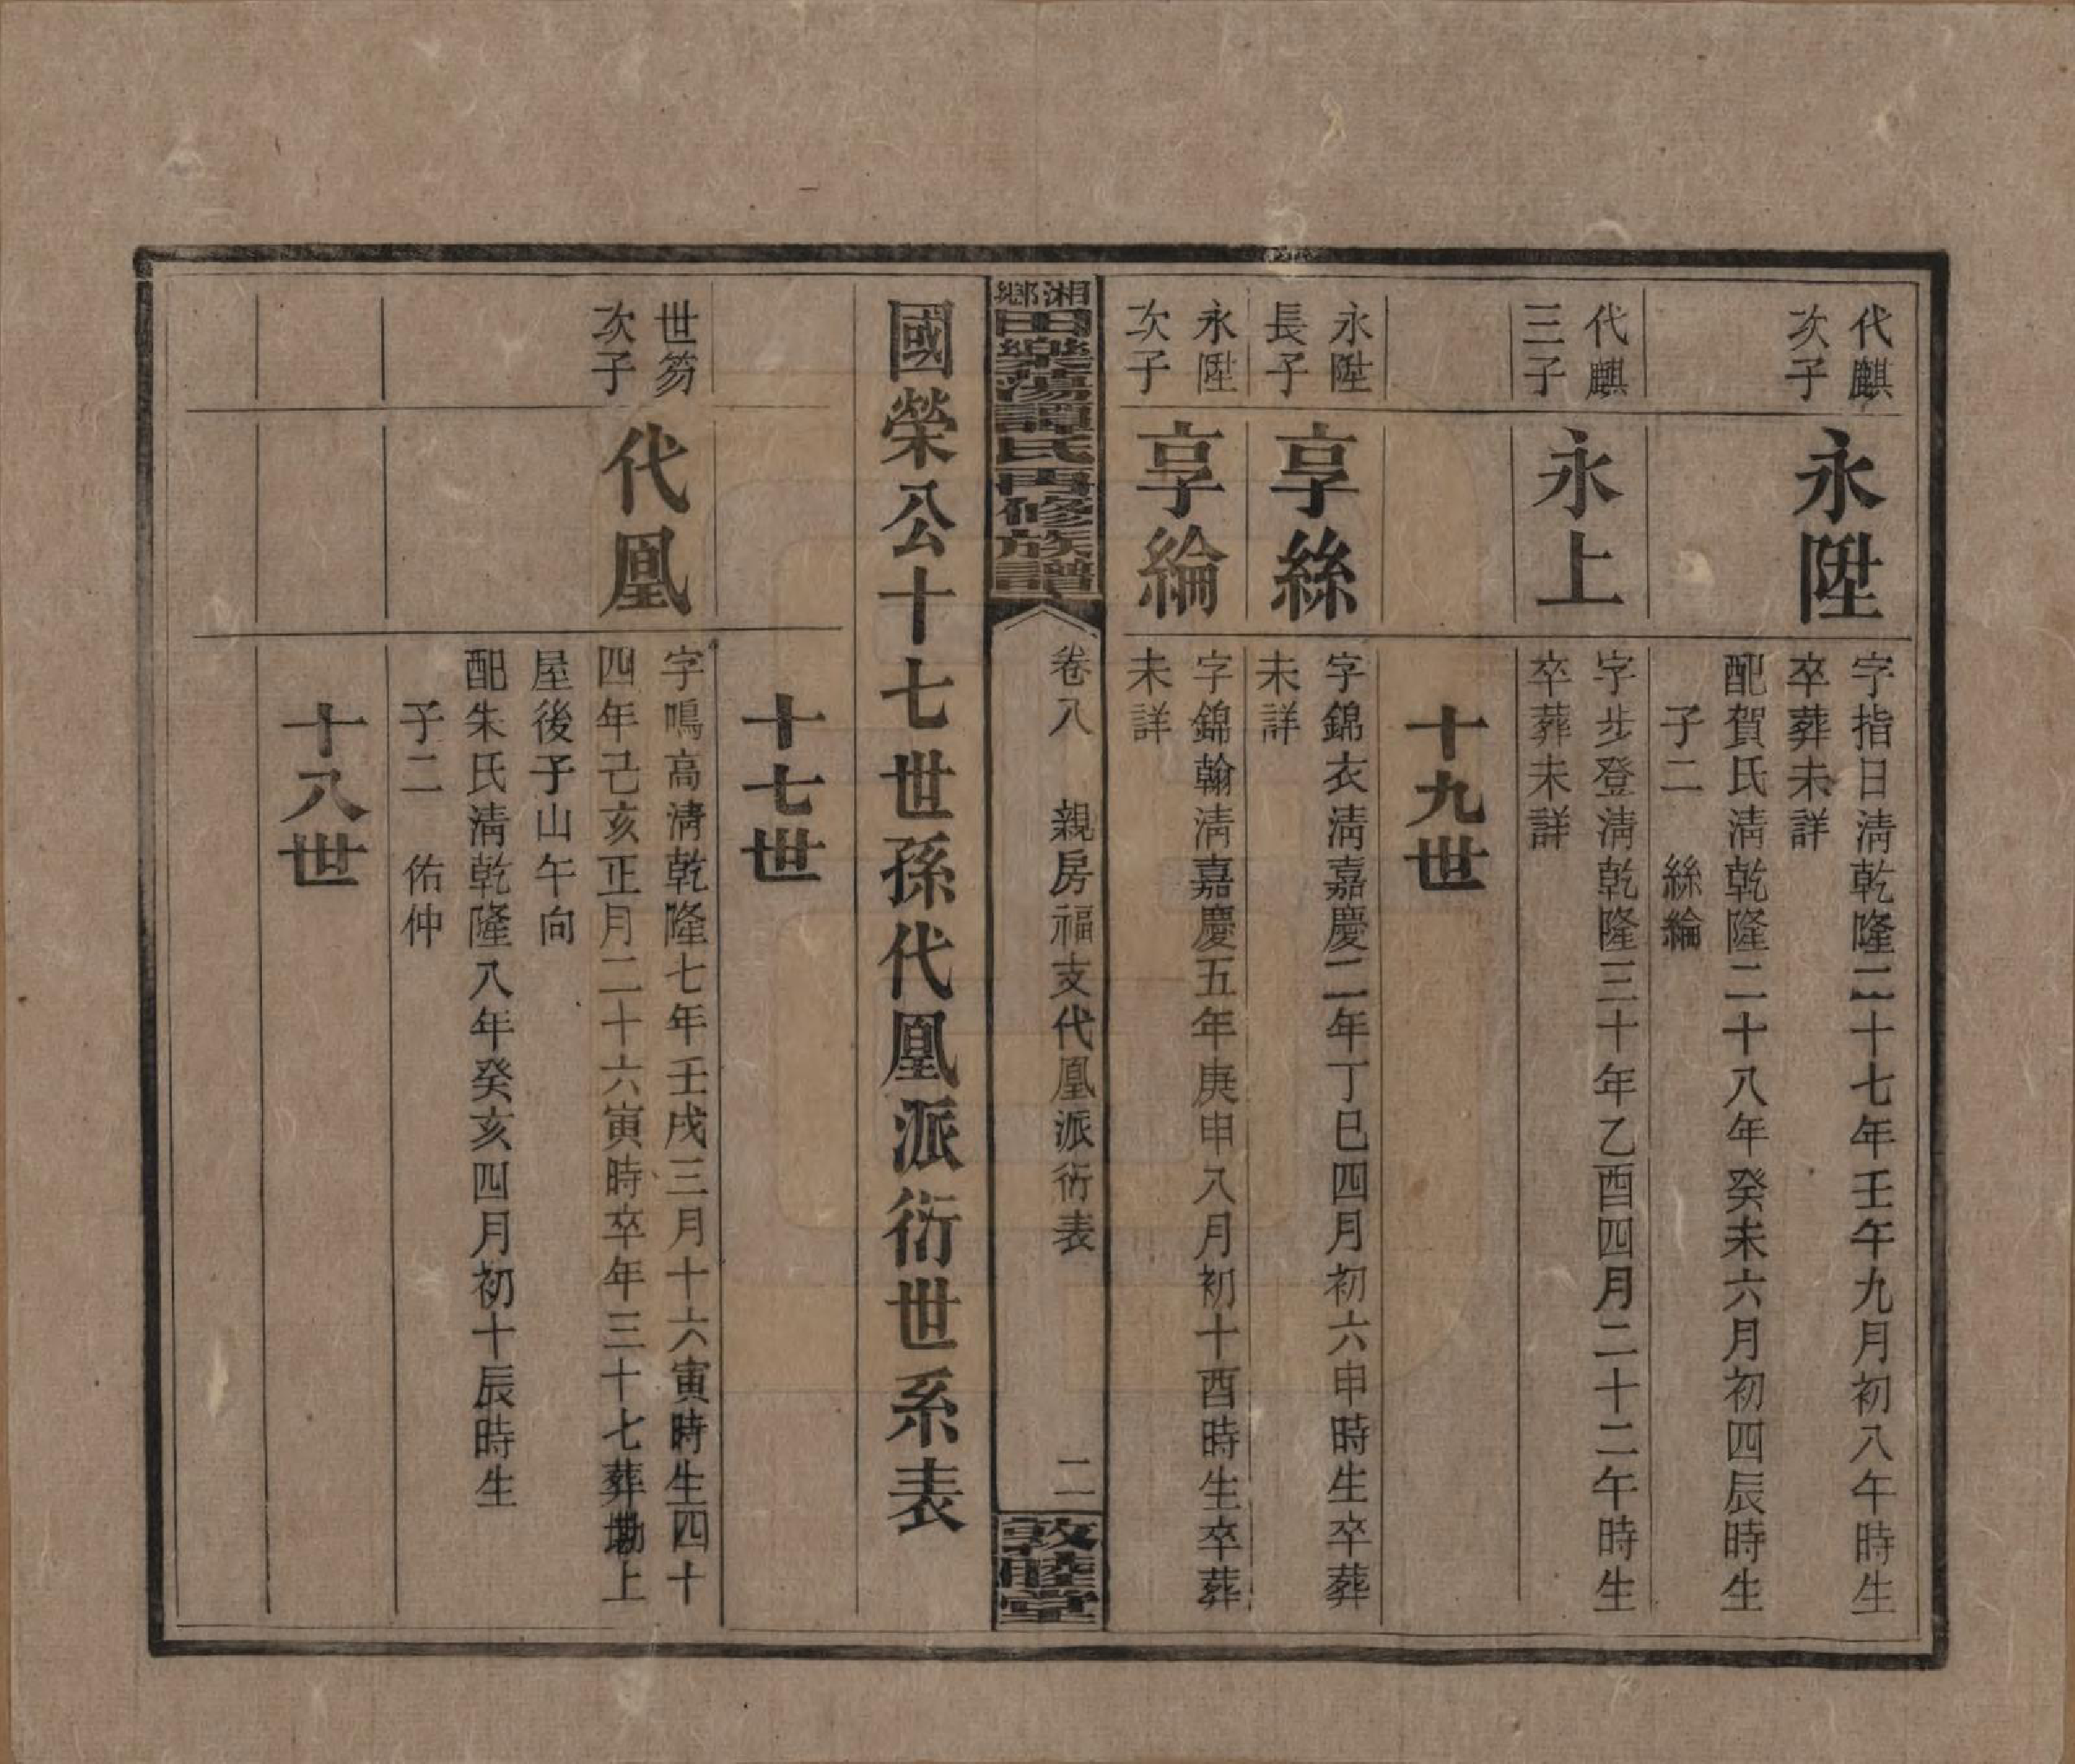 代麒
次子
永陞
字指日淸乾隆二十七年壬午九月初八午時生
卒葬未詳
配賀氏淸乾隆二十八年癸未六月初四辰時生
子二　絲綸
代麒
三子
永上
字步登淸乾隆三十年乙酉四月二十二午時生
卒葬未詳
十九世
永陞
長子
享絲
字錦衣淸嘉慶二年丁巳四月初六申時生卒葬
未詳
永陞
次子
享綸
字錦翰淸嘉慶五年庚申八月初十酉時生卒葬
未詳
湘鄉田樂蕩譚氏再修族譜
卷八　親房福支代凰派衍表　二
敦睦堂
國榮公十七世孫代凰派衍世系表
十七世
世笏
次子
代凰
字鳴高淸乾隆七年壬戌三月十六寅時生四十
四年己亥正月二十六寅時卒年三十七葬塲上
屋後子山午向
配朱氏淸乾隆八年癸亥四月初十辰時生
子二　佑仲
十八世